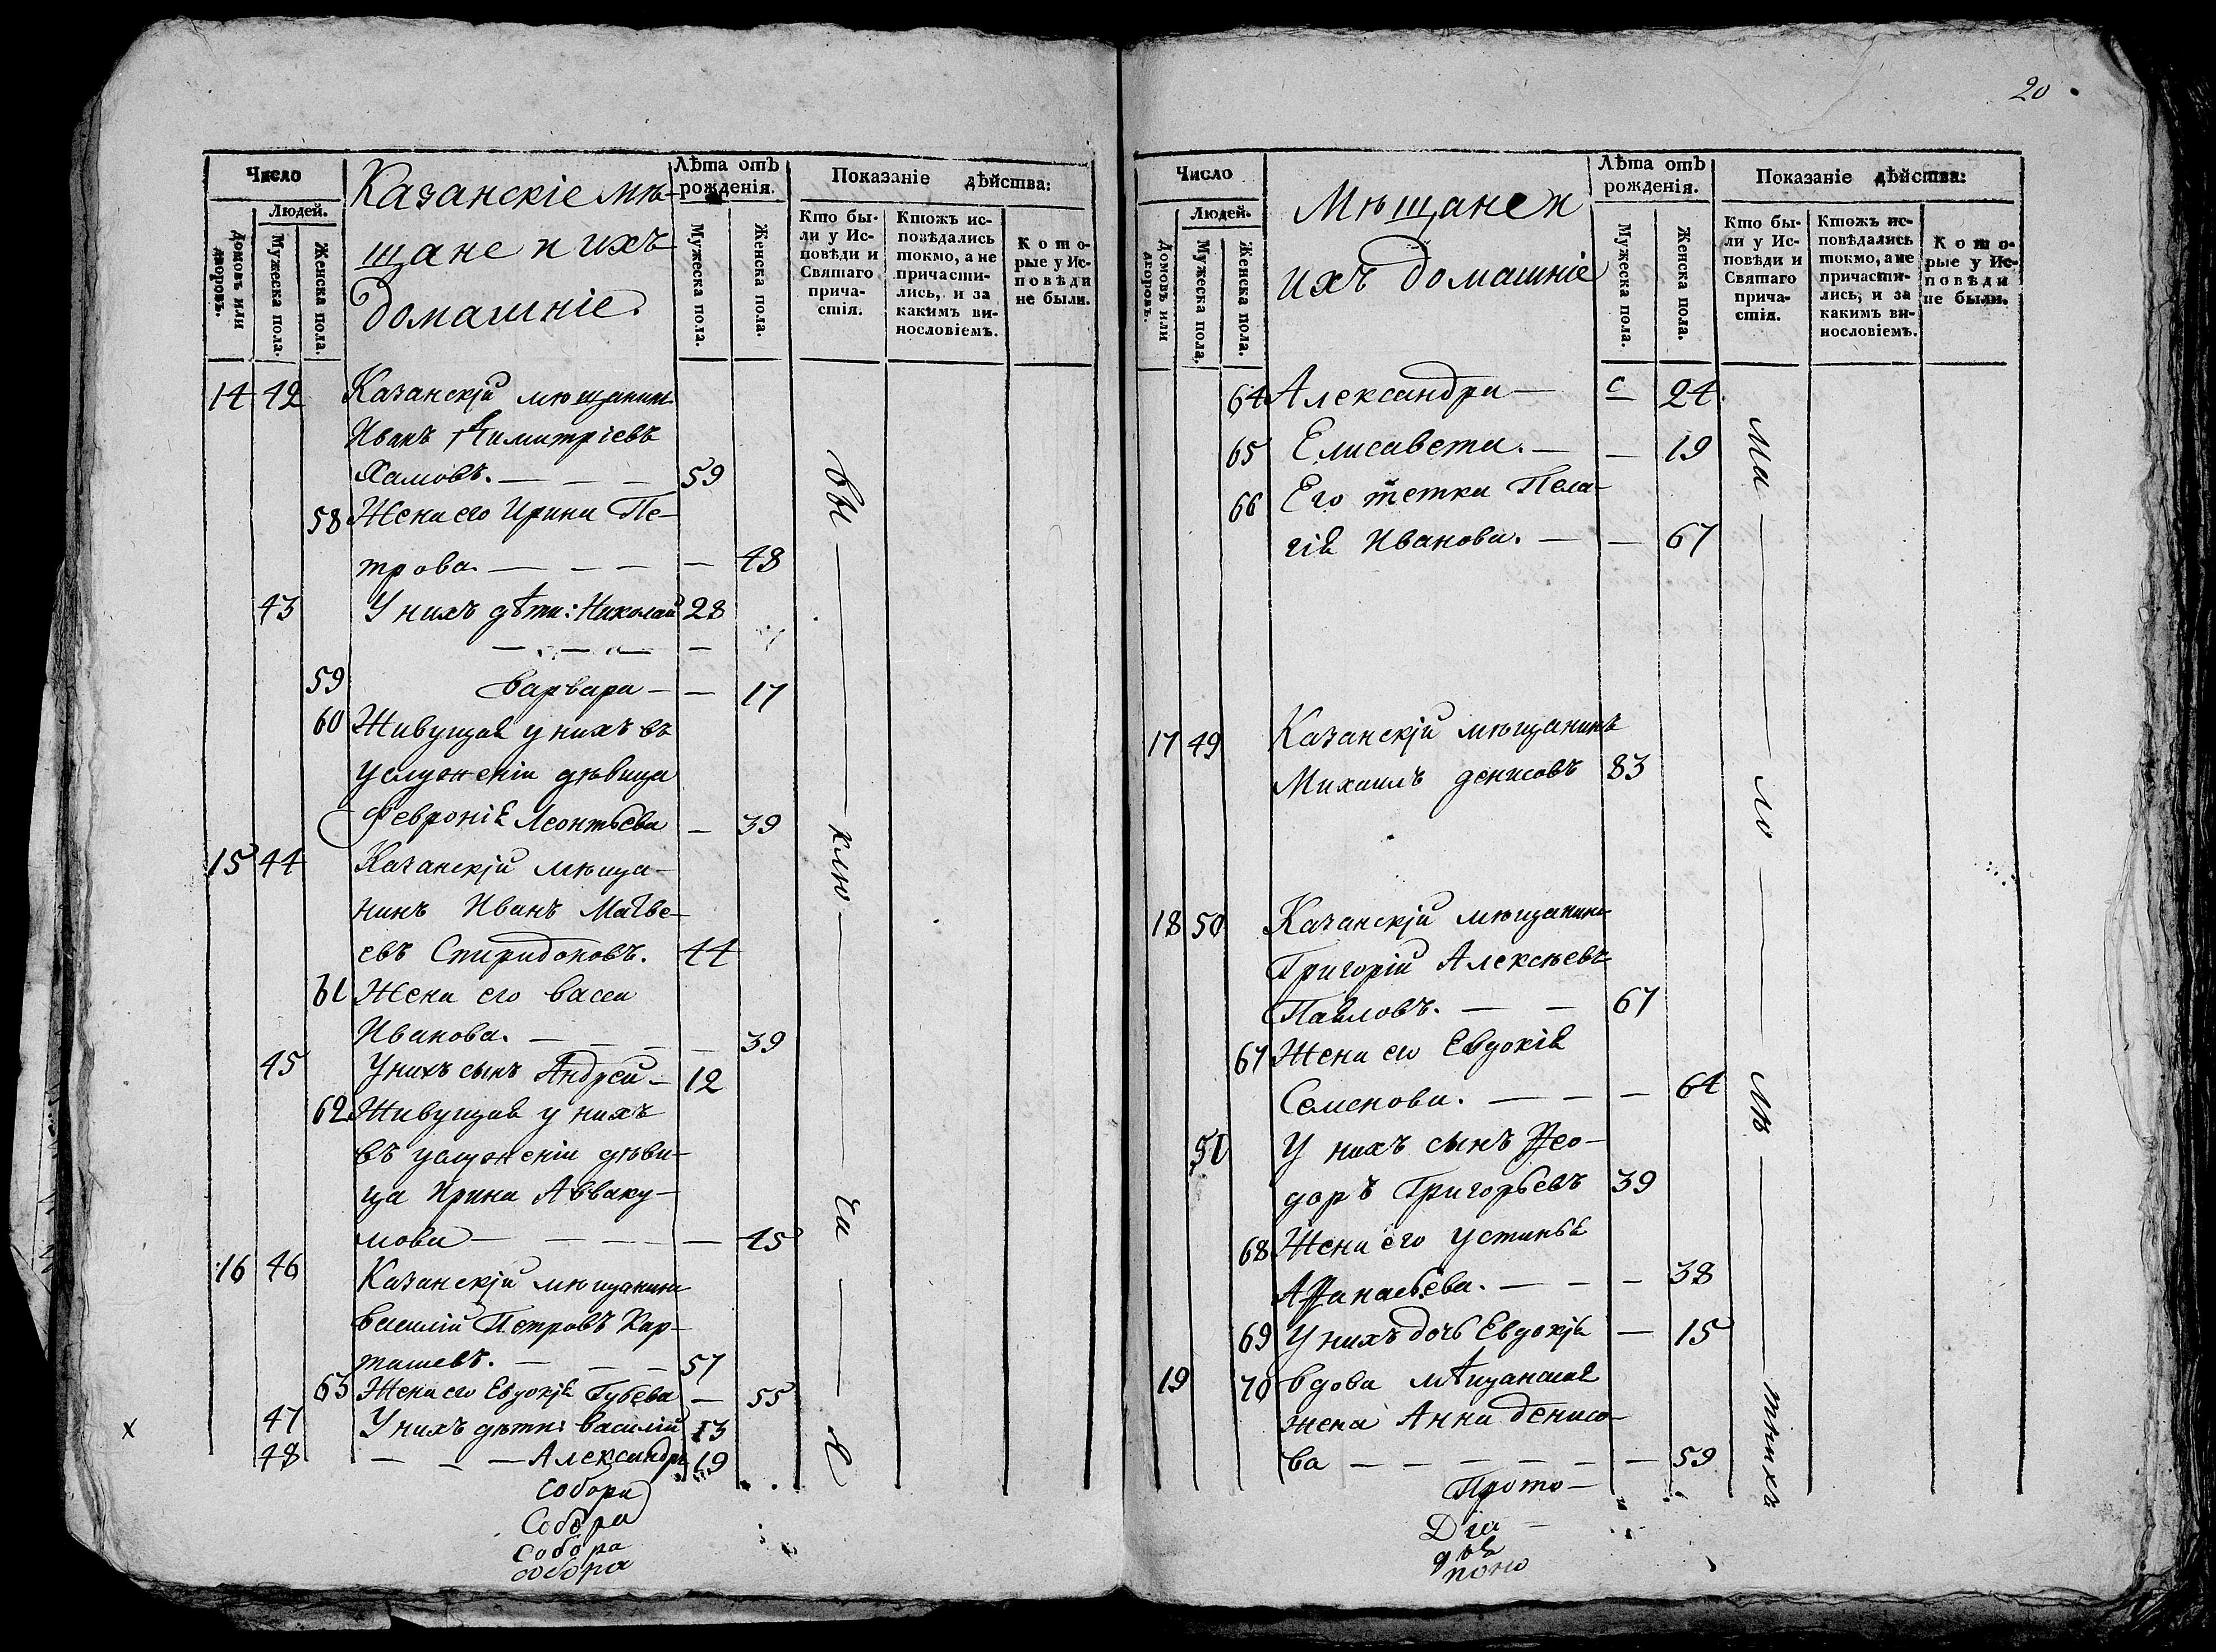 Число
Казанскіе мѣ-
щане и ихъ
домашніе.
Лѣта отъ
рожденія.
Показаніе дѣйства:
Людей.
Домовъ или
дворовъ.
Мужеска пола.
Женска пола.
Мужеска пола.
Женска пола.
Кто бы-
ли у Ис-
повѣди и
Святаго
прича-
стія.
Ктожъ ис-
повѣдались
токмо, а не
причасти-
лись, и за
какимъ ви-
нословіемъ.
Кото-
рые у Ис-
повѣди
не были.
14 42 Казанскій мѣщанинъ
Иванъ Димитріевъ
Хамовъ. — — — 59
58 Жена его Ирина Пе-
трова. — — — — 48
43 У нихъ дѣти: Николай 28
59 Варвара — — 17
60 Живущая у нихъ въ
услуженіи дѣвица
Февронія Леонтьева — 39
15 44 Казанскій мѣща-
нинъ Иванъ Матве-
евъ Спиридоновъ. 44
61 Жена его Васса
Иванова. — — — — 39
45 У нихъ сынъ Андрей — 12
62 Живущая у нихъ
въ услуженіи дѣви-
ца Ирина Авваку-
мова — — — — 45
16 46 Казанскій мѣщанинъ
Василій Петровъ Кар-
ташевъ. — — — 57
63 Жена его Евдокія Губева — 55
47 У нихъ дѣти: Василій 13
48 — — — Александръ 19
х
Собора
Собора
Собора
собора
вы — клю — ча — я
20
Число
Мѣщане и
ихъ домашніе
Лѣта отъ
рожденія.
Показаніе дѣйства:
Людей.
Домовъ или
дворовъ.
Мужеска пола.
Женска пола.
Мужеска пола.
Женска пола.
Кто бы-
ли у Ис-
повѣди и
Святаго
прича-
стія.
Ктожъ ис-
повѣдались
токмо, а не
причасти-
лись, и за
какимъ ви-
нословіемъ.
Кото-
рые у Ис-
повѣди
не были.
64 Александра — с 24
65 Елисавета. — — 19
66 Его тетка Пела-
гія Иванова. — — 67
17 49 Казанскій мѣщанинъ
Михаилъ Денисовъ 83
18 50 Казанскій мѣщанинъ
Григорій Алексѣевъ
Павловъ. — — 67
67 Жена его Евдокія
Семенова. — — — 64
51 У нихъ сынъ Ѳео-
доръ Григорьевъ 39
68 Жена его Устинья
Аѳанасьева. — — — 38
69 У нихъ дочь Евдокія — 15
19 70 Вдова мѣщанская
жена Анна Денисо-
ва — — — — — — 59
Прото-
Діа-
поно
ма — ло — лѣ — тнихъ